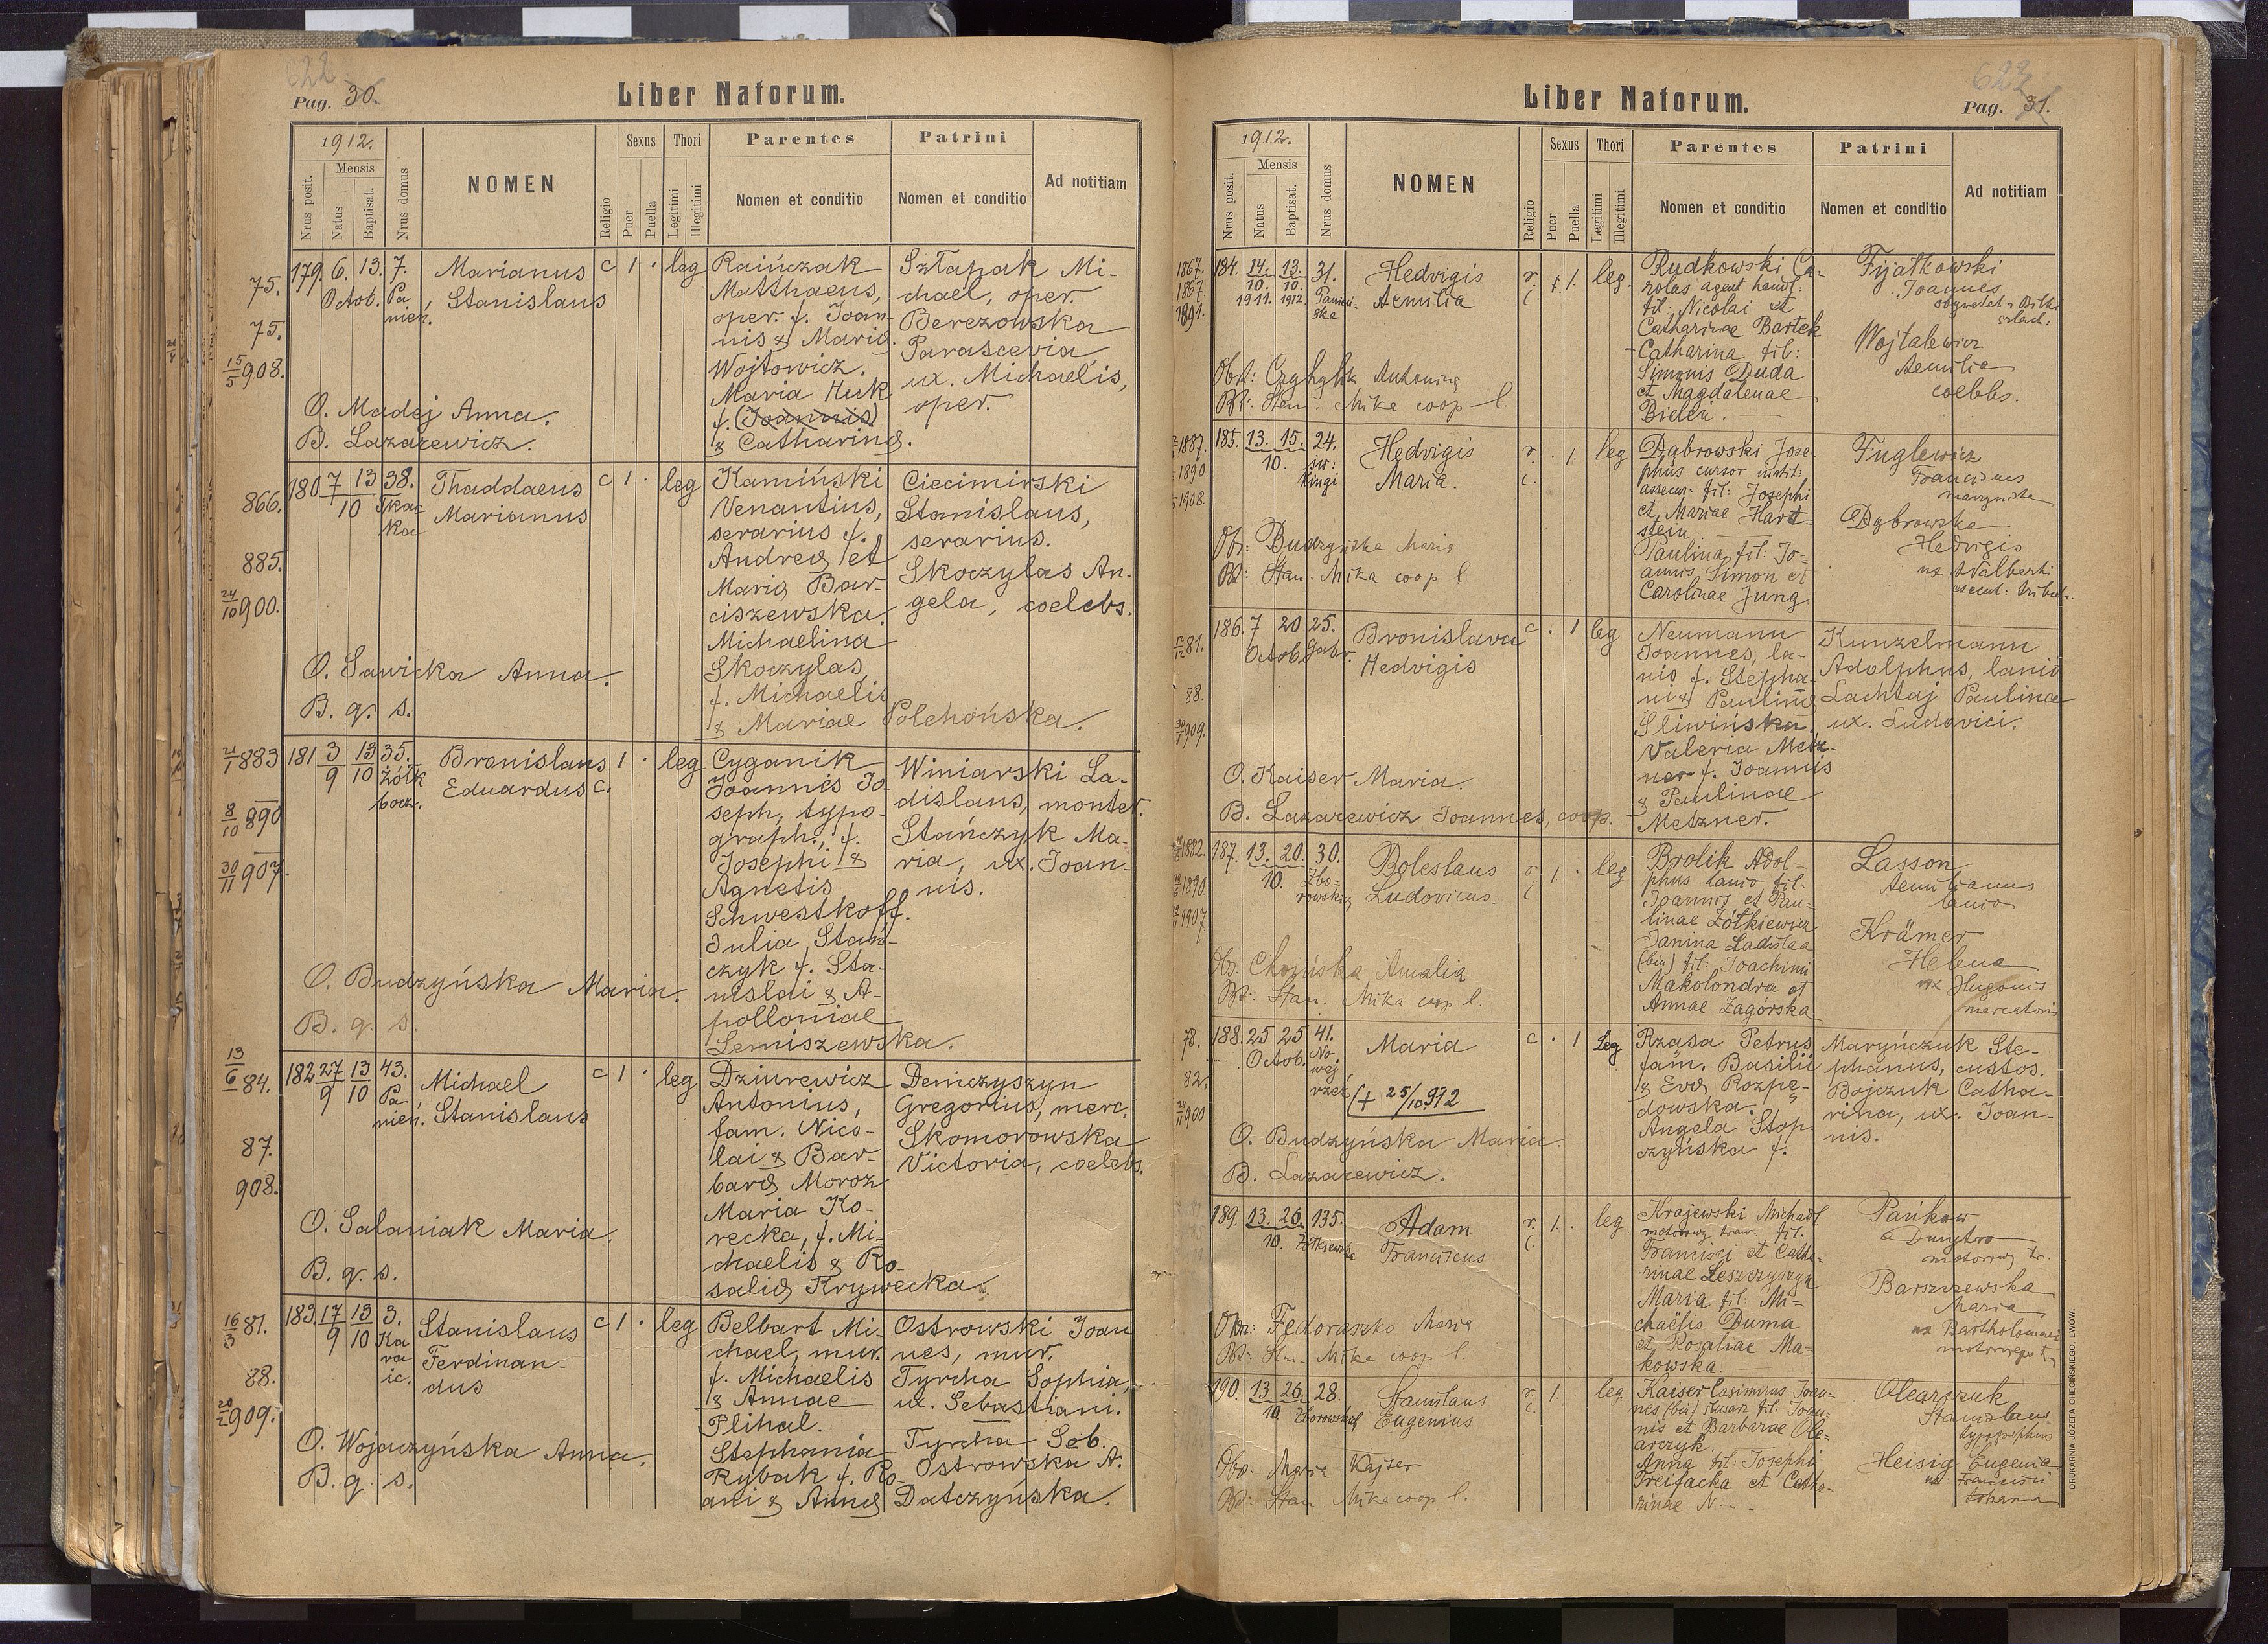 622
Pag. 30.
Liber Natorum.
1912.
Nrus posit.
Mensis
Natus
Baptisat.
Nrus domus
NOMEN
Religio
Sexus
Puer
Puella
Thori
Legitimi
Illegitimi
Parentes
Nomen et conditio
Patrini
Nomen et conditio
Ad notitiam
75.
75.
15/5 908.
179. 6. 13. 7.
Octob. Pa
nień.
Marianus
Stanislaus
c 1 · leg
Raińczak
Matthaeus,
oper. f. Joan-
nis & Mariæ
Wojtowicz.
Maria Huk
f. (Joannis)
& Catharinæ.
Sztapak Mi-
chael, oper.
Berezowska
Parascevia
ux. Michaelis,
oper.
O. Madej Anna.
B. Lazarewicz.
866.
885.
24/10 900.
180 7 13 38.
10 Tkac
ka
Thaddaeus
Marianus
c 1 · leg
Kamiński
Venantius,
serarius f.
Andreæ et
Mariæ Bar-
ciszewska.
Michaelina
Skoczylas,
f. Michaelis
& Mariae Polchońska.
Ciecimirski
Stanislaus,
serarius.
Skoczylas An-
gela, coelebs.
O. Sawicka Anna.
B. q. s.
21/1 883
8/10 890
30/11 907.
181 3 13 35.
9 10 Żółk
Bronislaus
Eduardus c.
1 · leg
Cyganik
Joannes Jo-
seph, typo-
graph., f.
Josephi &
Agnetis
Schwestkoff.
Julia Stań-
czyk f. Sta-
nislai & A-
polloniae
Lemiszewska.
Winiarski La-
dislaus, monter.
Stańczyk Ma-
ria, ux. Joan-
nis.
O. Budzyńska Maria.
B. q. s.
13/6 84.
87.
908.
182 27 13 43.
9 10 Pa
nień.
Michael
Stanislaus
c 1 · leg
Dziurewicz
Antonius,
fam. Nico-
lai & Bar-
baræ Moroz.
Maria Ko-
recka, f. Mi-
chaelis & Ro-
saliæ Krywecka.
Demczyszyn
Gregorius, merc.
Skomorowska
Victoria, coelebs.
O. Salaniak Maria.
B. q. s.
16/3 81.
88.
20/2 909.
183. 17 13 3.
9 10 Ka
ra
ic.
Stanislaus
Ferdinan-
dus
c 1 · leg
Belbart Mi-
chael, mur.
f. Michaelis
& Annae
Plihal.
Stephania
Rybak f. Ro-
ani & Annæ Datczyńska.
Ostrowski Joan
nes, mur.
Tyrcha Sophia,
ux. Sebastiani.
Tyrcha Seb.
Ostrowska A.
O. Wojaczyńska Anna.
B. q. s.
Pag. 31.
Liber Natorum.
1912.
Nrus posit.
Mensis
Natus
Baptisat.
Nrus domus
NOMEN
Religio
Sexus
Puer
Puella
Thori
Legitimi
Illegitimi
Parentes
Nomen et conditio
Patrini
Nomen et conditio
Ad notitiam
1867.
1867.
1891.
184. 14. 13. 31.
10. 10.
1911. 1912.
Hedvigis
Aemilia
r. c. 1. leg.
Rydkowski Ca-
rolus agent handl:
fil: Nicolai et
Catharinae Bartek
Catharina fil:
Simonis Duda
et Magdalenae
Bielen.
Fijałkowski
Joannes
Wojtalewicz
Aemilia
coelebs.
Obst: Antonina
Bt: Stan. Mika coop l.
1887.
1890.
1908.
185. 13. 15. 24.
10. św:
Kingi
Hedvigis
Maria.
r. c. · 1. leg
Dąbrowski Jose
phus cursor instit:
assecur. fil: Josephi
et Mariae Hart-
stein.
Paulina fil: Jo-
annis Simon et
Carolinae Jung
Fuglewicz
Franciscus
maszynista
Dąbrowska
Hedvigis
ux Adalberti
Obs: Budzyńska Maria
Bt: Stan. Mika coop l
81.
88.
909.
186. 7 20 25.
Octob. Gabr.
Bronislava
Hedvigis
c · 1 leg
Neumann
Joannes, la-
nio f. Stepha-
ni & Paulinæ
Sliwińska.
Valeria Metz-
ner f. Joannis
& Paulinae
Metzner.
Kunzelmann
Adolphus, lanio
Lachtaj Paulina
ux. Ludovici.
O. Kaiser Maria.
B. Lazarewicz Joannes, coop.
1882.
1890
1907.
187. 13. 20. 30.
10. Zbo-
rowskich
Boleslaus
Ludovicus.
r. c. 1. · leg
Brolik Adol-
phus lanio fil.
Joannis et Pau-
linae Żółkiewicz
Janina Ladislaa
(bin) fil: Joachimi
Makolondra et
Annae Zagórska
Lasson
Aemilianus
lanio
Krämer
Helena
ux Hugonis
mercatoris
Obs. Chojńska Amalia
Bt: Stan. Mika coop l.
78.
82.
900
188. 25 25 41.
Octob. No
wej
rzeź.
Maria
(+ 25/10 912
c · 1 Leg
Rzasa Petrus
fam. Basilii
& Evæ Rozpę-
dowska.
Angela Stop-
czyńska f.
Maryńczuk Ste-
phanus, custos.
Bojczuk Catha-
rina, ux. Joan-
nis.
O. Budzyńska Maria.
B. Lazarewicz.
189. 13. 26. 135.
10. Żółkiewska
Adam
Franciscus
r. c. 1. · leg
Krajewski Michaël
motorowy tramw. fil.
Francisci et Catha-
rinae Leszczyszyn
Maria fil: Mi-
chaëlis Duma
et Rosaliae Ma-
kowska
Pańkow
Dmytro
motorowy tr.
Barszczewska
Maria
ux Bartholomaei
motorowego tr.
Obs: Fedoraszko Maria
Bt: Stan. Mika coop l.
190. 13. 26. 28.
10. Zborowskich
Stanislaus
Eugenius
r. c. 1. leg
Kaiser Casimirus Joan-
nes (bin) ślusarz fil: Joan-
nis et Barbarae Ole-
arczyk.
Anna fil: Josephi
Preifacka et Catha-
rinae N.
Olearczuk
Stanislaus
typographus
Heisig Eugenia
ux. Francisci
Obs. Maria Kajser
Bt: Stan. Mika coop l.
DRUKARNIA JÓZEFA CHĘCIŃSKIEGO, LWÓW.